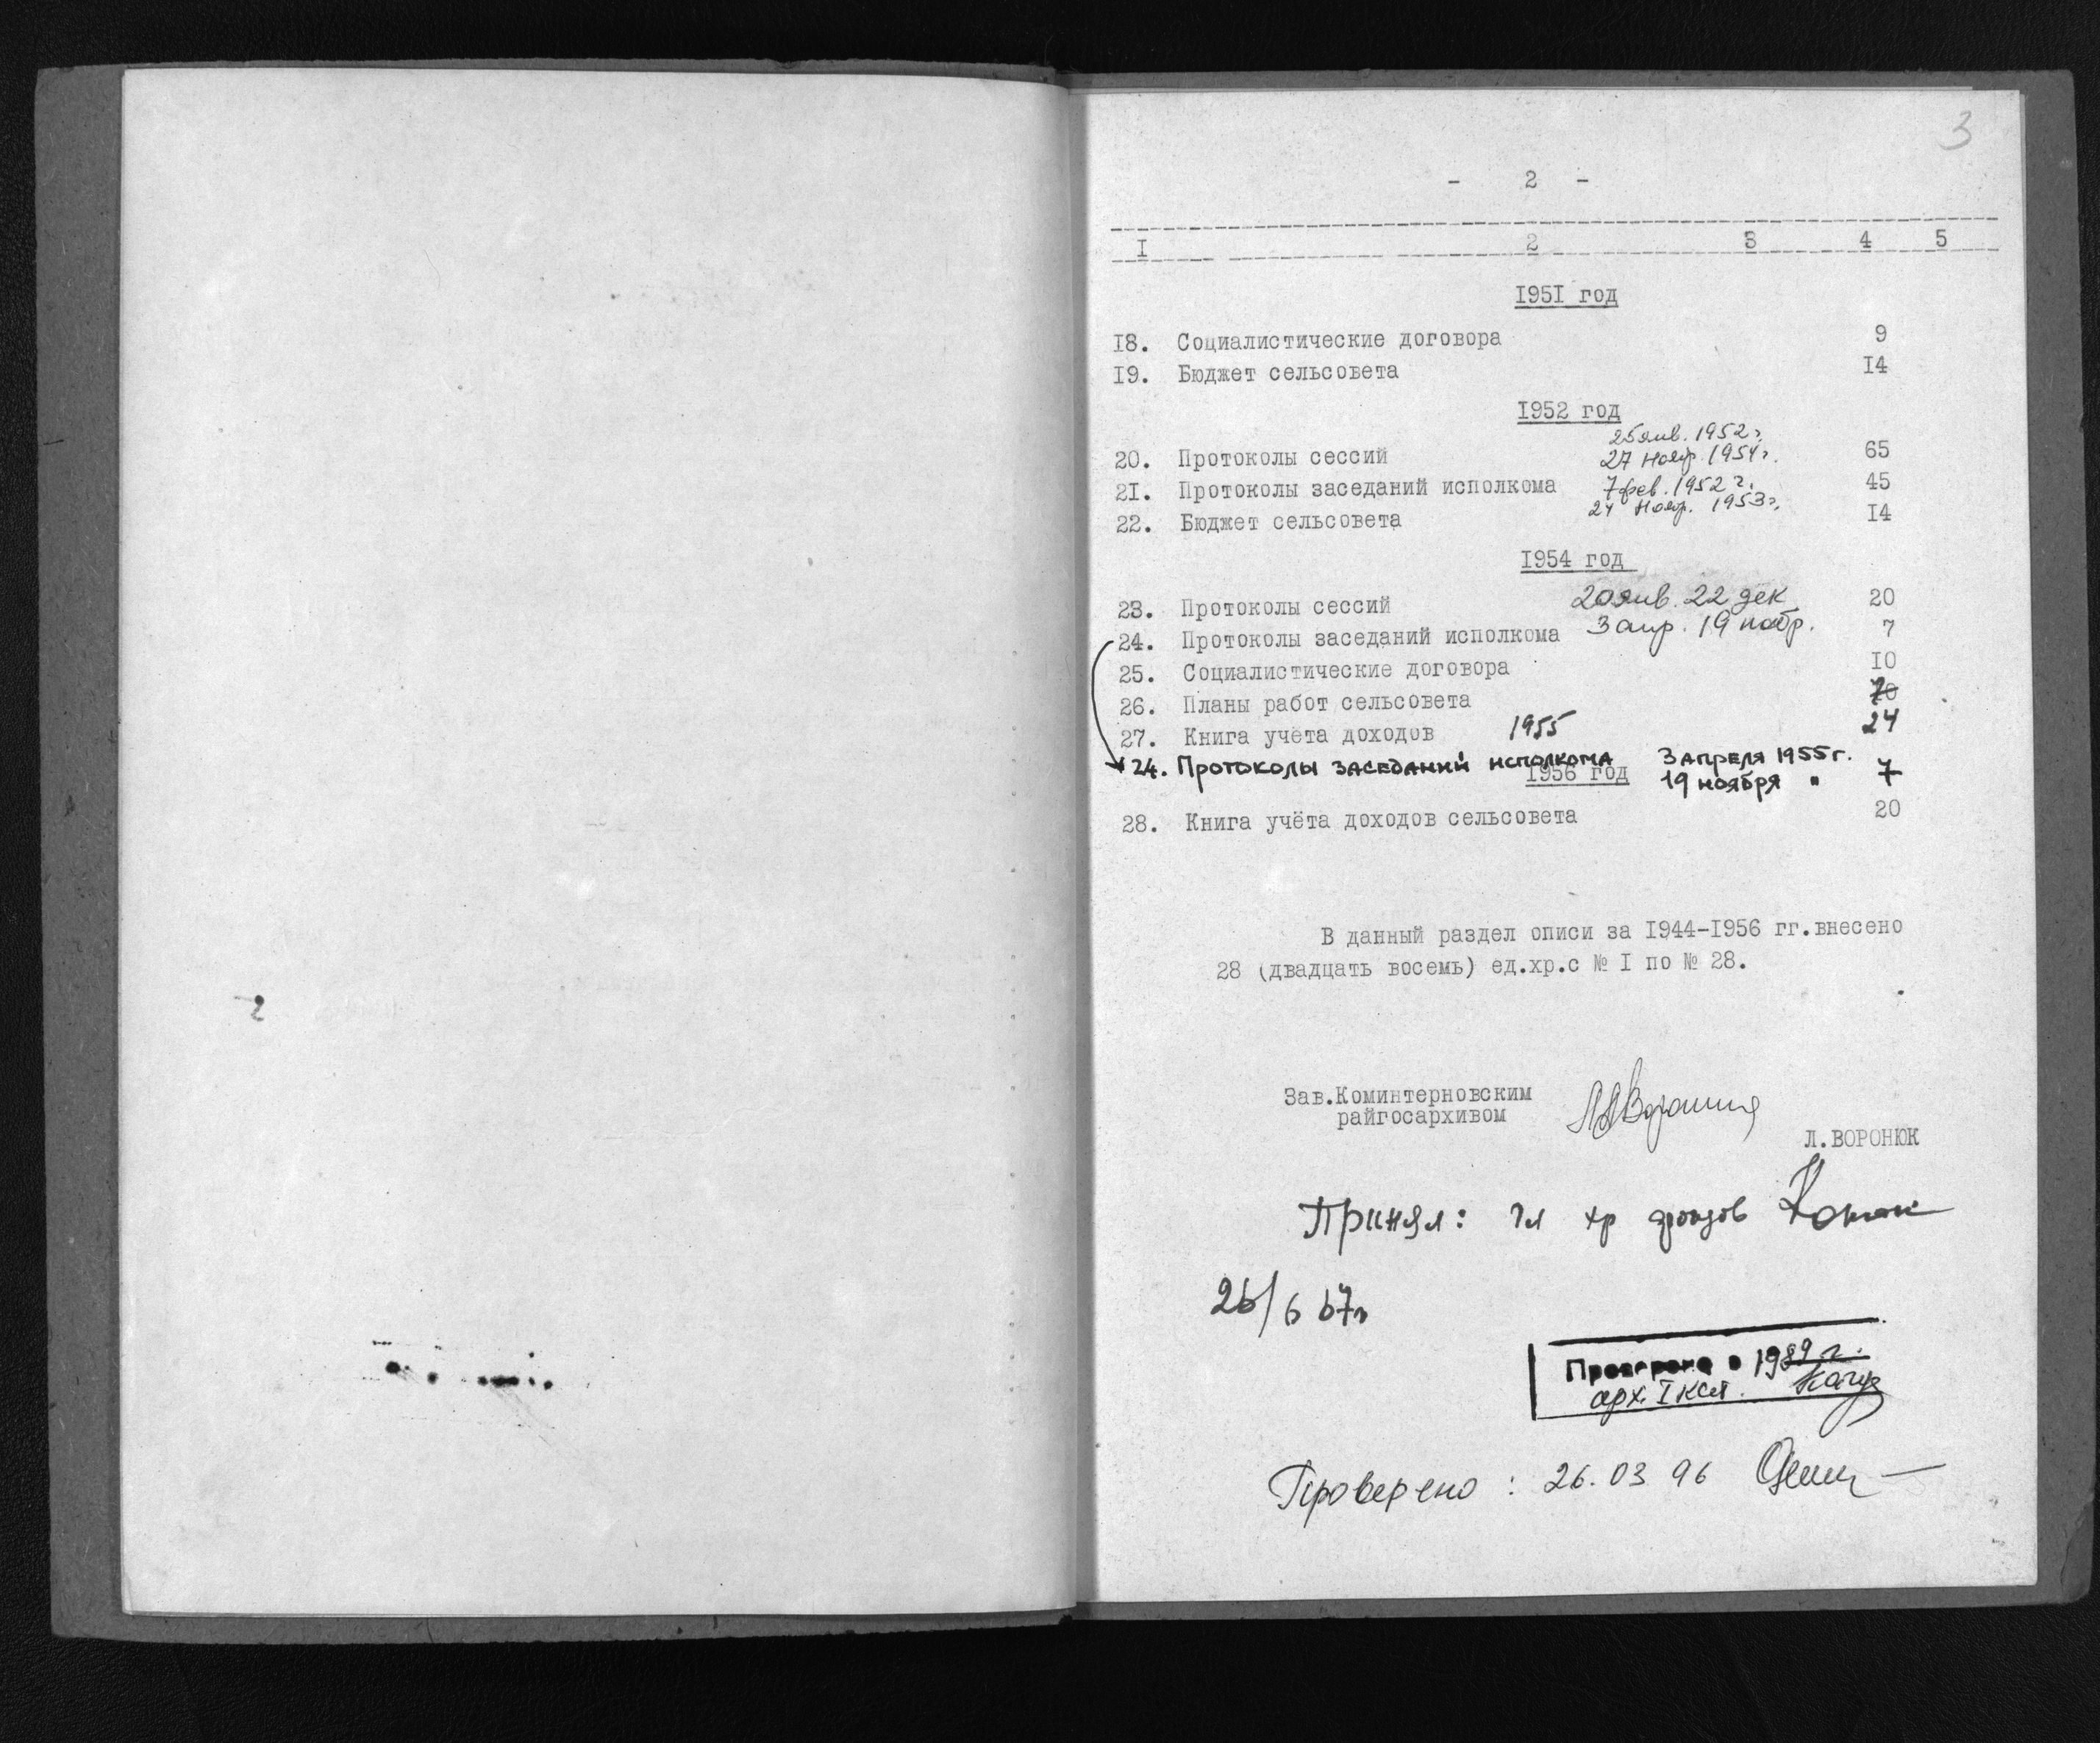 3
- 2 -
I 2 3 4 5
I95I год
I8. Социалистические договора 9
I9. Бюджет сельсовета I4
I952 год
25 янв. 1952 г.
20. Протоколы сессий 27 нояр. 1954 г. 65
2I. Протоколы заседаний исполкома 7 фев. 1952 г. 45
24 нояр. 1953 г.
22. Бюджет сельсовета I4
I954 год
23. Протоколы сессий 20 янв. 22 дек 20
24. Протоколы заседаний исполкома 3 апр. 19 ноябр. 7
25. Социалистические договора I0
26. Планы работ сельсовета
27. Книга учёта доходов 1955 24
24. Протоколы заседаний исполкома 3 апреля 1955 г. 7
I956 год 19 ноября "
28. Книга учёта доходов сельсовета 20
В данный раздел описи за I944-I956 гг.внесено
28 (двадцать восемь) ед.хр.с № I по № 28.
Зав.Коминтерновским
райгосархивом
Л.ВОРОНЮК
Принял: гл хр фондов
26/6 67г
Проверено в 1989 г.
арх. I кат.
Проверено : 26.03 96
2